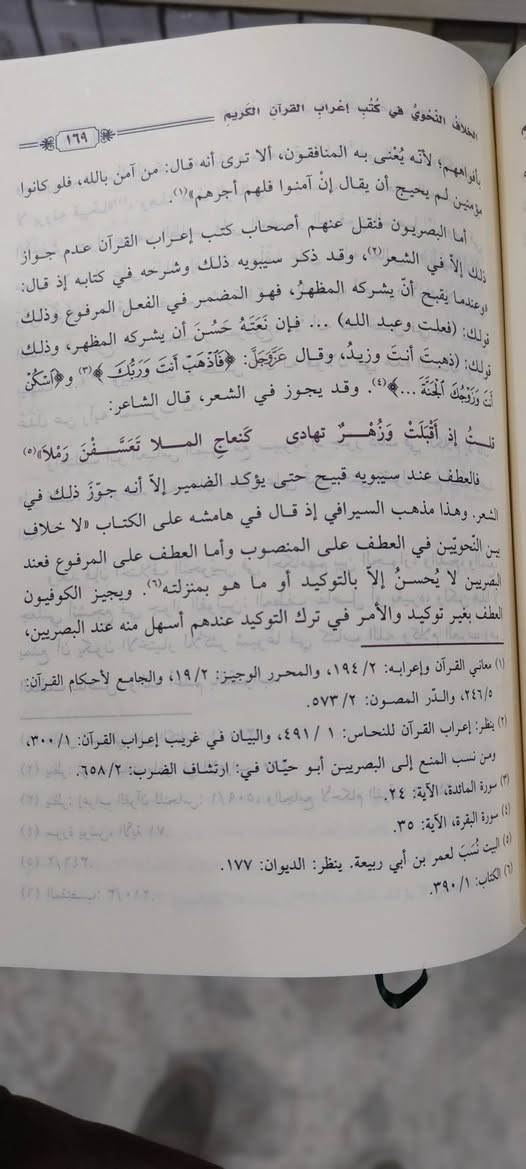 الخلاف النّحويُّ في كُتُبِ إعْرابِ القرآنِ الكَريمِ
١٦٩
بأفواههم؛ لأنّه يُعْنى به المنافقون، ألا ترى أنه قال: من آمن بالله، فلو كانوا
مؤمنين لم يحيج أن يقال إنْ آمنوا فلهم أجرهم»(١).
أما البصريون فنقل عنهم أصحاب كتب إعراب القرآن عدم جواز
ذلك إلاّ في الشعر(٢)، وقد ذكر سيبويه ذلك وشرحه في كتابه إذ قال:
«وعندما يقبح أنّ يشركه المظهرُ، فهو المضمر في الفعل المرفوع وذلك
قولك: (فعلت وعبد الله) ... فإن نَعَتَهُ حَسُنَ أن يشركه المظهر، وذلك
قولك: (ذهبتَ أنتَ وزيدُ، وقال عَزَّوَجَلَّ: ﴿فَاذْهَبْ أَنتَ وَرَبُّكَ﴾(٣) و﴿اسْكُنْ
أَنتَ وَزَوْجُكَ الْجَنَّةَ ...﴾(٤). وقد يجوز في الشعر، قال الشاعر:
قلتُ إذ أقْبَلَتْ وَزُهْـــرٌ تهادى كَنعاجِ المــلا تَعَسَّـفْـنَ رَمْلاَ»(٥)
فالعطف عند سيبويه قبيح حتى يؤكد الضمير إلاّ أنه جوّزَ ذلك في
الشعر. وهذا مذهب السيرافي إذ قال في هامشه على الكتاب «لا خلاف
بين النّحويّين في العطف على المنصوب وأما العطف على المرفوع فعند
البصريين لا يُحسنُ إلاّ بالتوكيد أو ما هو بمنزلته(٦). ويجيز الكوفيون
العطف بغير توكيد والأمر في ترك التوكيد عندهم أسهل منه عند البصريين،
(١) معاني القرآن وإعرابه: ٢/ ١٩٤، والمحرر الوجيز: ١٩/٢، والجامع لأحكام القرآن:
٢٤٦/٥، والدّر المصون: ٢/ ٥٧٣.
(٢) ينظر: إعراب القرآن للنحاس: ١ / ٤٩١، والبيان في غريب إعراب القرآن: ٣٠٠/١،
ومن نسب المنع إلى البصريين أبو حيّان في: ارتشاف الضرب: ٢/ ٦٥٨.
(٣) سورة المائدة، الآية: ٢٤.
(٤) سورة البقرة، الآية: ٣٥.
(٥) البيت نُسَبَ لعمر بن أبي ربيعة. ينظر: الديوان: ١٧٧.
(٦) الكتاب: ٣٩٠/١.